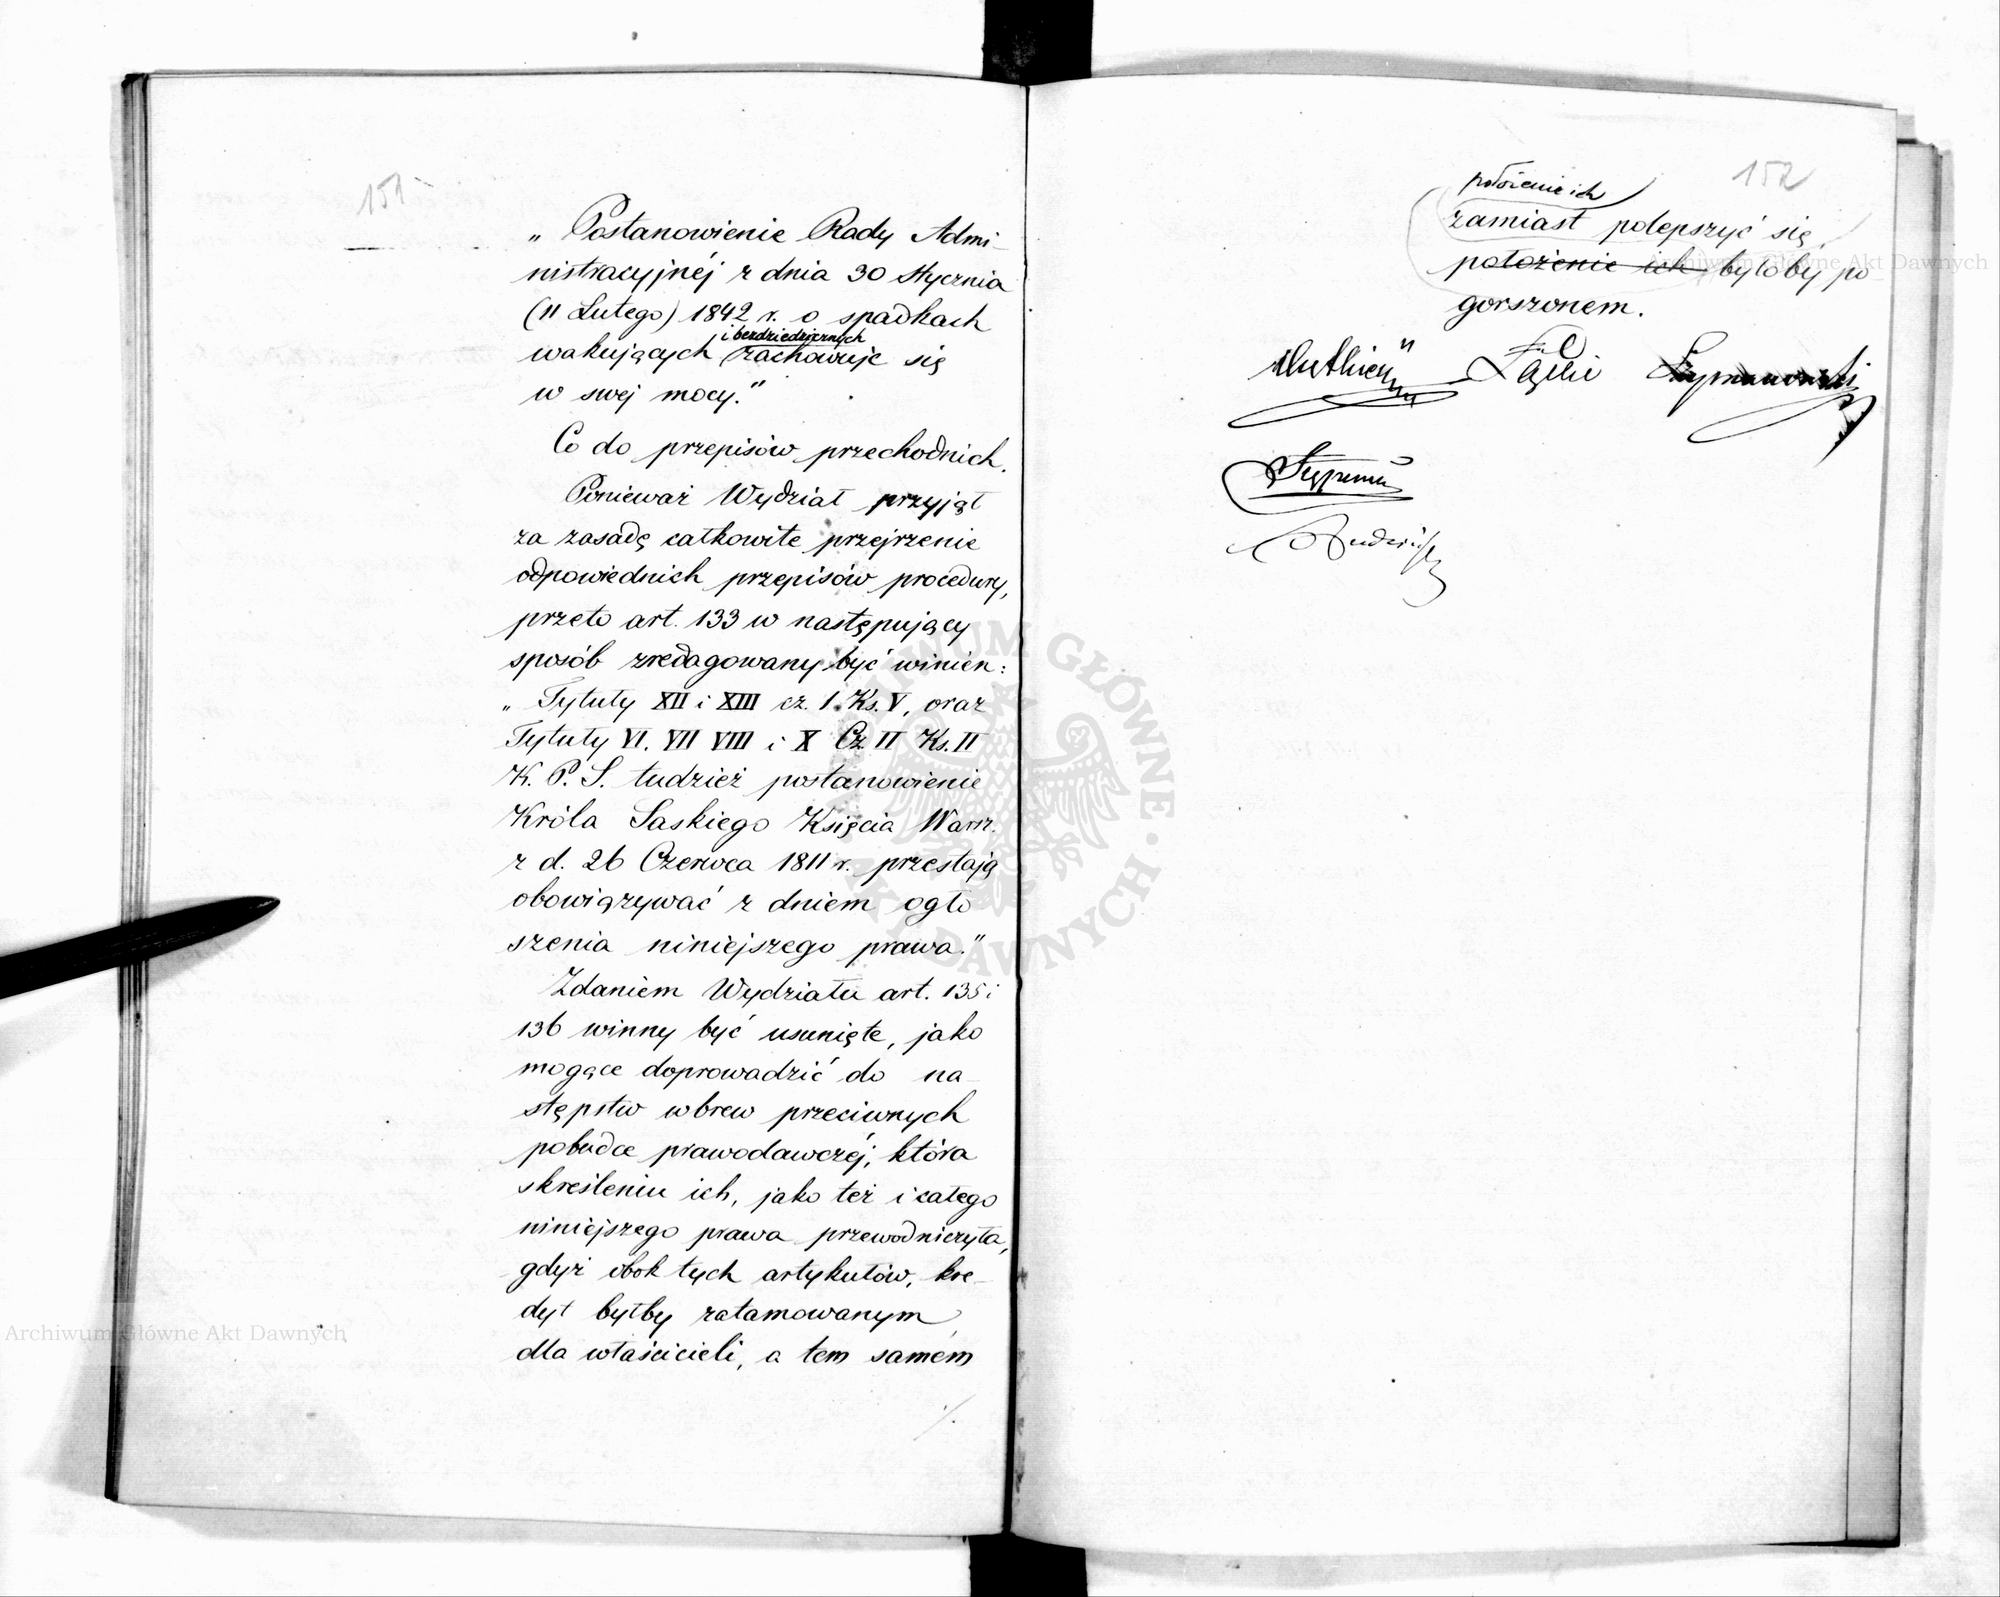 151
„ Postanowienie Rady Admi-
nistracyjnéj z dnia 30 Stycznia
(11 Lutego) 1842 r. o spadkach
i bezdziedzicznych
wakujących zachowuje się
w swej mocy."
Co do przepisów przechodnich.
Ponieważ Wydział przyjął
za zasadę całkowite przejrzenie
odpowiednich przepisów procedury,
przeto art. 133 w następujący
sposób zredagowany być winien:
„ Tytuły XII i XIII cz. 1. Ks. V, oraz
Tytuły VI. VII VIII i X Cz. II Ks. II
K. P. S. tudzież postanowienie
Króla Saskiego Księcia Warsz.
z d. 26 Czerwca 1811 r. przestają
obowiązywać z dniem ogło
szenia niniejszego prawa."
Zdaniem Wydziału art. 135 i
136 winny być usunięte, jako
mogące doprowadzić do na-
stępstw wbrew przeciwnych
pobudce prawodawczéj, która
skreśleniu ich, jako też i całego
niniejszego prawa przewodniczyła,
gdyż obok tych artykułów, kre-
dyt byłby zatamowanym
dla właścicieli, a tem samém
152
położenie ich
zamiast polepszyć się,
położenie ich byłoby po
gorszonem.
Szymanowski
ARCHIWUM GŁÓWNE AKT DAWNYCH
Archiwum Główne Akt Dawnych
Archiwum Główne Akt Dawnych